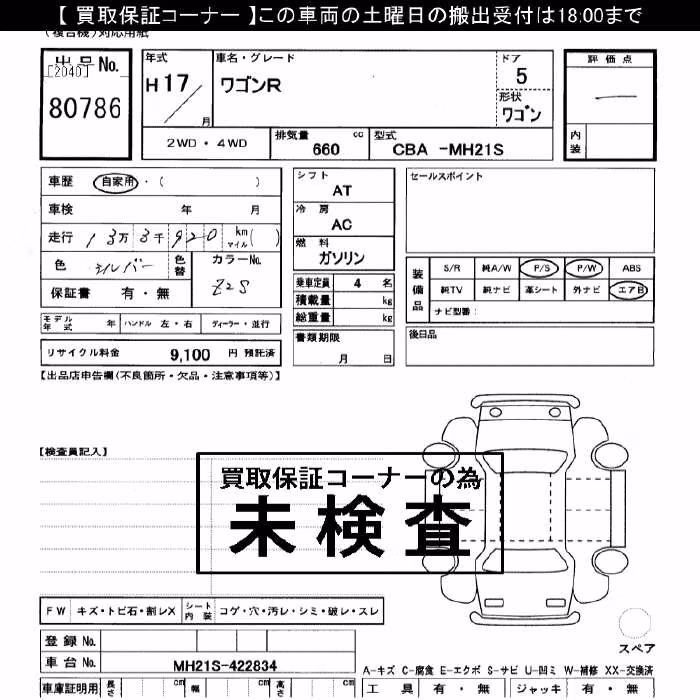 【 買取保証コーナー 】この車両の土曜日の搬出受付は18:00まで
(複合機)対応用紙
出品No.
[2040]
80786
年式
H17
月
車名・グレード
ワゴンR
ドア
5
形状
ワゴン
評価点
―
内装
2WD・4WD
排気量 cc
660
型式
CBA -MH21S
車歴 自家用・( )
車検 年 月
走行 13万3千920 km マイル( )
色 シルバー 色替 カラーNo.
Z2S
保証書 有・無
モデル年式 年 ハンドル 左・右 ディーラー・並行
リサイクル料金 9,100 円 預託済
シフト
AT
冷房
AC
燃料
ガソリン
乗車定員 4 名
積載量 kg
総重量 kg
書類期限
月 日
セールスポイント
装備品
S/R 純A/W P/S P/W ABS
純TV 純ナビ 革シート 外ナビ エアB
ナビ型番:
後日品
【出品店申告欄(不良箇所・欠品・注意事項等)】
【検査員記入】
買取保証コーナーの為
未検査
FW キズ・トビ石・割レX シート内装 コゲ・穴・汚レ・シミ・破レ・スレ
登録No.
車台No. MH21S-422834
車庫証明用 長さ cm 幅 cm 高さ cm
スペア
A-キズ C-腐食 E-エクボ S-サビ U-凹ミ W-補修 XX-交換済
工具 有・無 ジャッキ 有・無